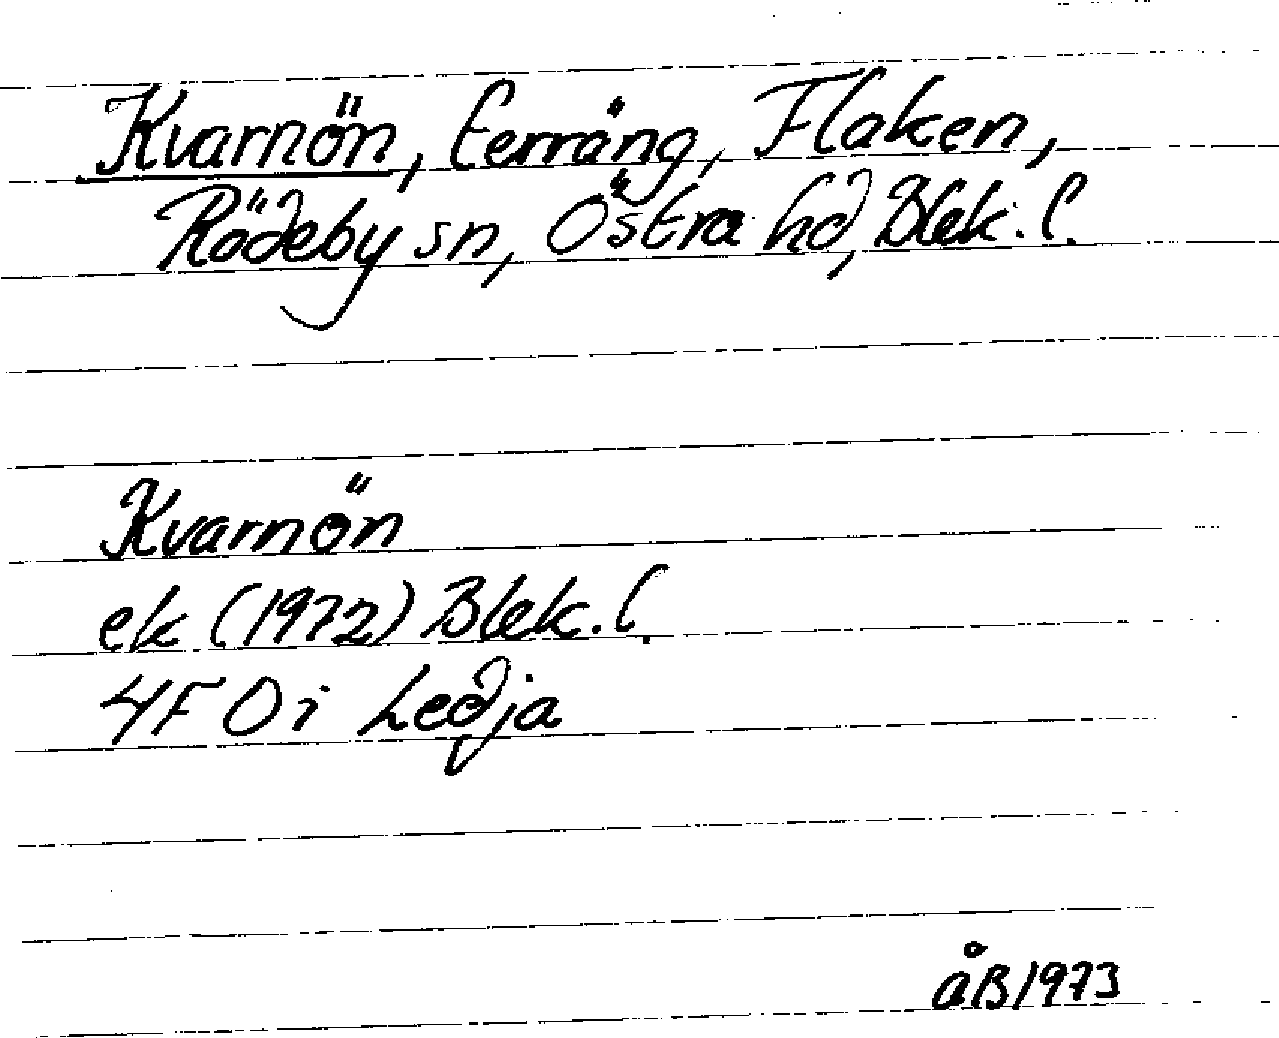 Kvarnön, terräng, Flaken,
Rödeby sn, Östra hd, Blek. l.
Kvarnön
ek (1972) Blek. l.
4F 0i Ledja
åB 1973